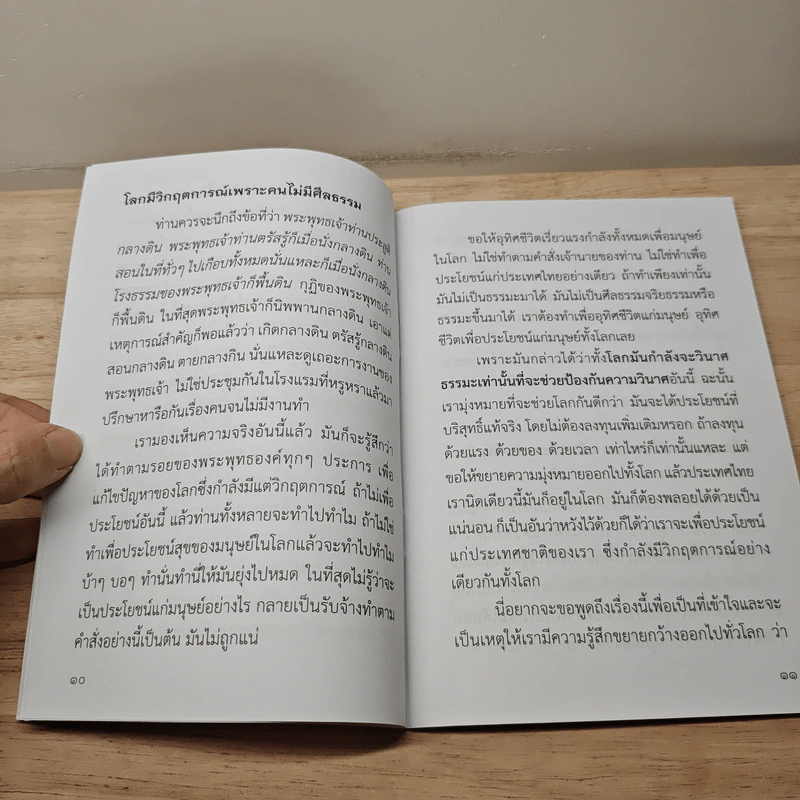 โลกมีวิกฤตการณ์เพราะคนไม่มีศีลธรรม
ท่านควรจะนึกถึงข้อที่ว่า พระพุทธเจ้าท่านประสูติ
กลางดิน พระพุทธเจ้าท่านตรัสรู้ก็เมื่อนั่งกลางดิน ท่าน
สอนในที่ทั่วๆ ไปเกือบทั้งหมดนั่นแหละก็เมื่อนั่งกลางดิน
โรงธรรมของพระพุทธเจ้าก็พื้นดิน กุฏิของพระพุทธเจ้า
ก็พื้นดิน ในที่สุดพระพุทธเจ้าก็นิพพานกลางดิน เอาแต่
เหตุการณ์สำคัญก็พอแล้วว่า เกิดกลางดิน ตรัสรู้กลางดิน
สอนกลางดิน ตายกลางดิน นั่นแหละดูเถอะการงานของ
พระพุทธเจ้า ไม่ใช่ประชุมกันในโรงแรมที่หรูหราแล้วมา
ปรึกษาหารือกันเรื่องคนจนไม่มีงานทำ
เรามองเห็นความจริงอันนี้แล้ว มันก็จะรู้สึกว่า
ได้ทำตามรอยของพระพุทธองค์ทุกๆ ประการ เพื่อ
แก้ไขปัญหาของโลกซึ่งกำลังมีแต่วิกฤตการณ์ ถ้าไม่เพื่อ
ประโยชน์อันนี้ แล้วท่านทั้งหลายจะทำไปทำไม ถ้าไม่ใช่
ทำเพื่อประโยชน์สุขของมนุษย์ในโลกแล้วจะทำไปทำไม
บ้าๆ บอๆ ทำนั่นทำนี่ให้มันยุ่งไปหมด ในที่สุดไม่รู้ว่าจะ
เป็นประโยชน์แก่มนุษย์อย่างไร กลายเป็นรับจ้างทำตาม
คำสั่งอย่างนี้เป็นต้น มันไม่ถูกแน่
๑๐
ขอให้อุทิศชีวิตเรี่ยวแรงกำลังทั้งหมดเพื่อมนุษย์
ในโลก ไม่ใช่ทำตามคำสั่งเจ้านายของท่าน ไม่ใช่ทำเพื่อ
ประโยชน์แก่ประเทศไทยอย่างเดียว ถ้าทำเพียงเท่านั้น
มันไม่เป็นธรรมะมาได้ มันไม่เป็นศีลธรรมจริยธรรมหรือ
ธรรมะขึ้นมาได้ เราต้องทำเพื่ออุทิศชีวิตแก่มนุษย์ อุทิศ
ชีวิตเพื่อประโยชน์แก่มนุษย์ทั้งโลกเลย
เพราะมันกล่าวได้ว่าทั้งโลกมันกำลังจะวินาศ
ธรรมะเท่านั้นที่จะช่วยป้องกันความวินาศอันนี้ ฉะนั้น
เรามุ่งหมายที่จะช่วยโลกกันดีกว่า มันจะได้ประโยชน์ที่
บริสุทธิ์แท้จริง โดยไม่ต้องลงทุนเพิ่มเติมหรอก ถ้าลงทุน
ด้วยแรง ด้วยของ ด้วยเวลา เท่าไหร่ก็เท่านั้นแหละ แต่
ขอให้ขยายความมุ่งหมายออกไปทั้งโลก แล้วประเทศไทย
เรานิดเดียวนี้มันก็อยู่ในโลก มันก็ต้องพลอยได้ด้วยเป็น
แน่นอน ก็เป็นอันว่าหวังไว้ด้วยก็ได้ว่าเราจะเพื่อประโยชน์
แก่ประเทศชาติของเรา ซึ่งกำลังมีวิกฤตการณ์อย่าง
เดียวกันทั้งโลก
นี่อยากจะขอพูดถึงเรื่องนี้เพื่อเป็นที่เข้าใจและจะ
เป็นเหตุให้เรามีความรู้สึกขยายกว้างออกไปทั่วโลก ว่า
๑๑